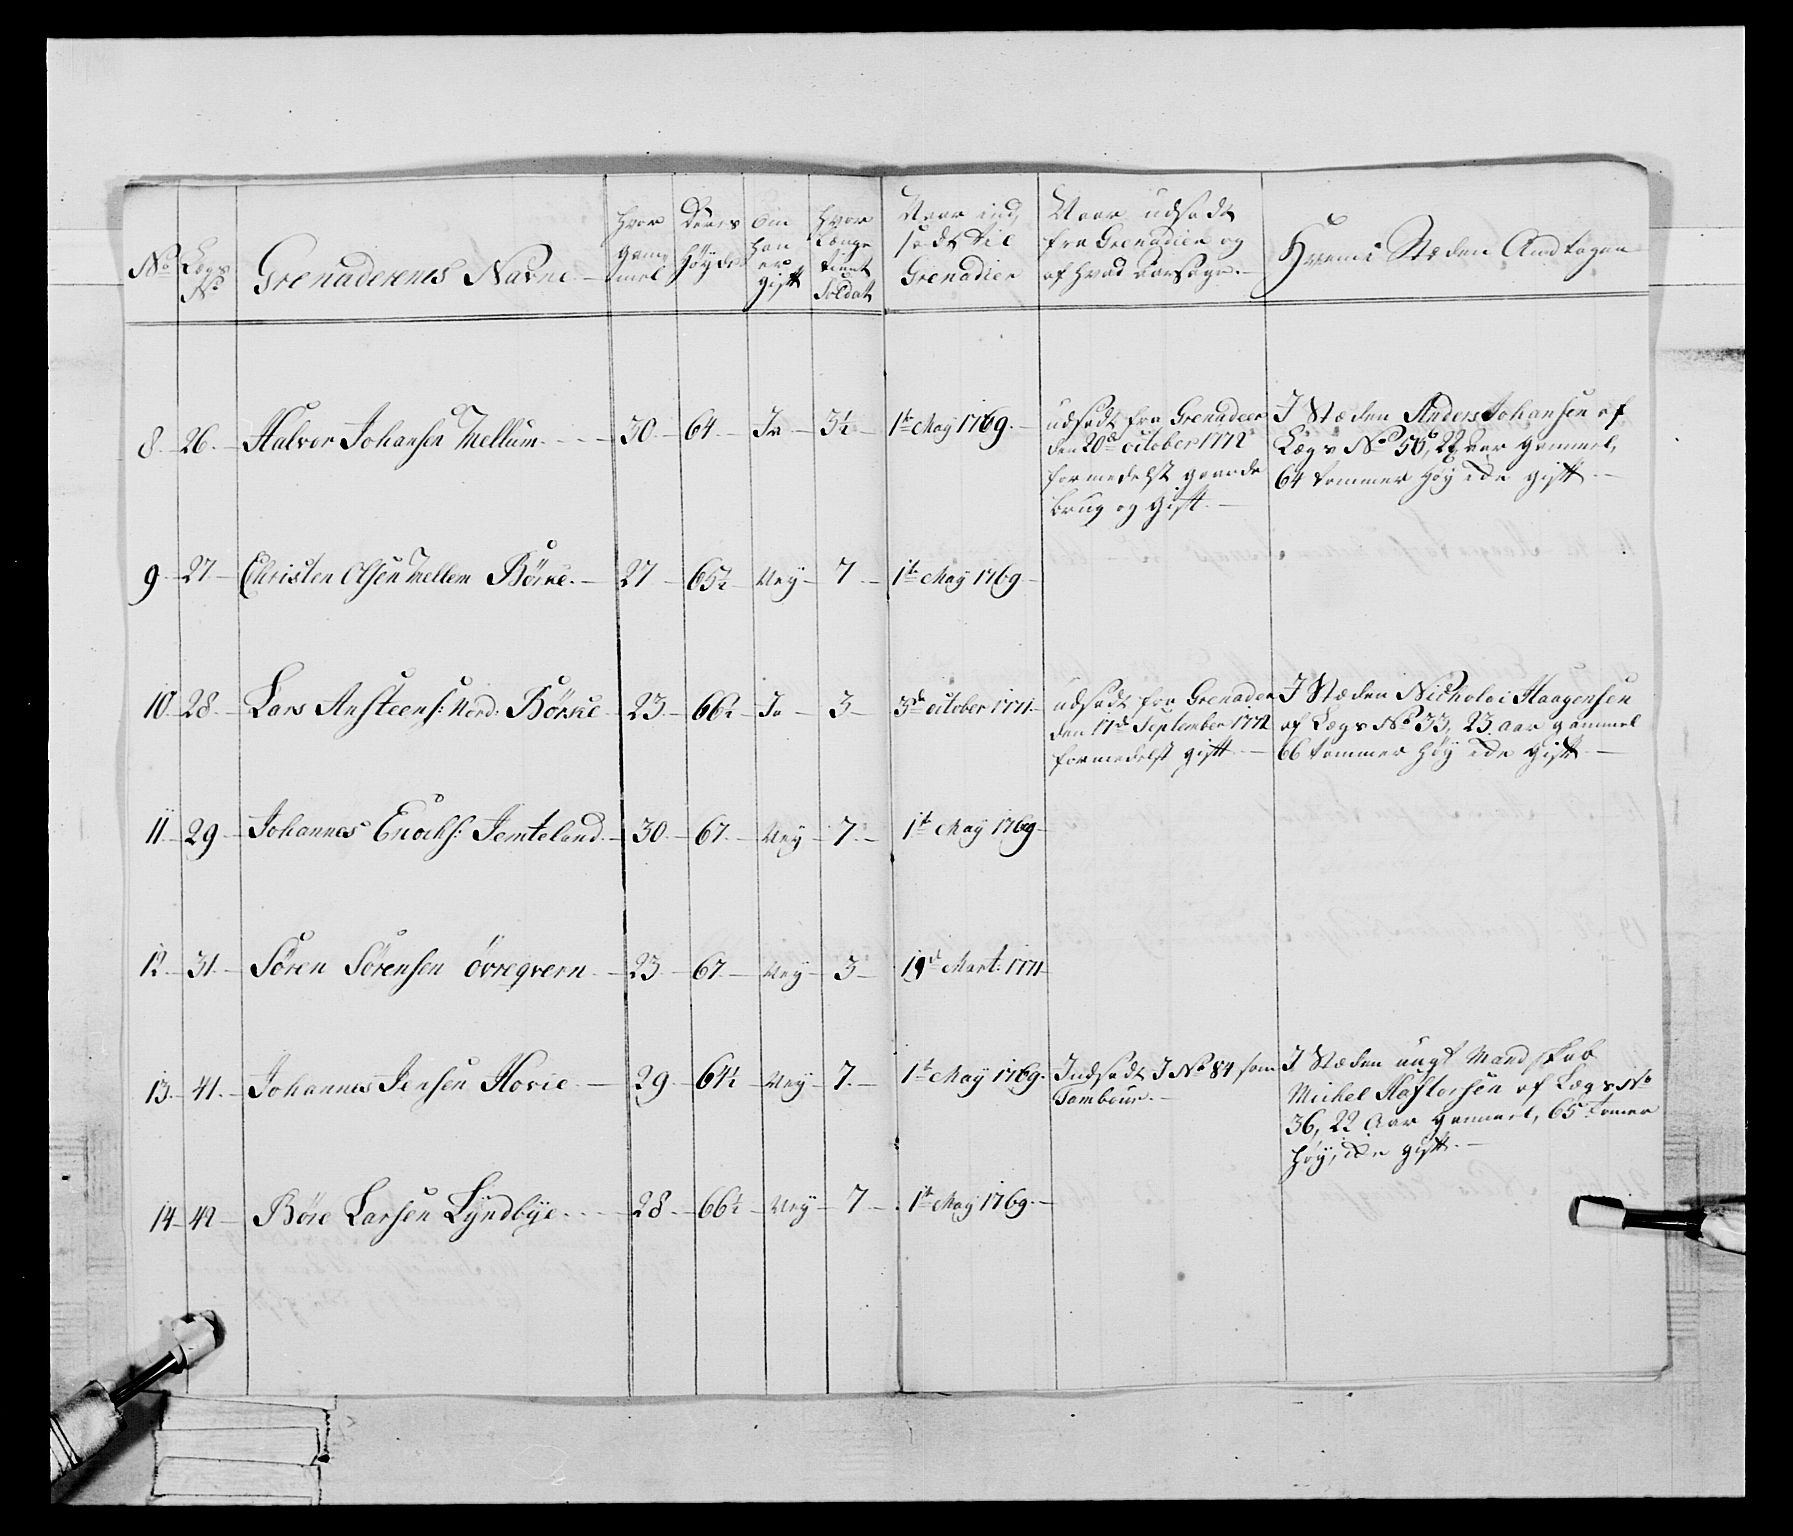 No. Lægs No. Grenaderernes Navne. Hvor gammel Deres Høyde Om han er gift Hvor Længe tient Soldat Naar indsadt til Grenadier Naar udsadt fra Grenadier og af hvad aarsage. Hvem i Stæden Andtagen
8. 26. Halvor Johansen Mellum 30. 64. Ja 3½ 1te May 1769.
udsadt fra Grenadeer
den 20de october 1772
formedelst gaarde
brug og gift.
I Stæden Anders Johansen af
Lægs No. 56, 22 aar gammel,
64 tommer høy ike gift.
9. 27. Christen Olsen Mellem Börke. 27 65½ Ney 7. 1te May 1769
10. 28. Lars Ansteens: Nord: Börske 23. 66½ Ja 3 3de october 1771.
udsadt fra Grenadeer
den 17de September 1772
formedelst gift.
I Stæden Nicholai Haagensen
af Lægs No. 33, 23 aar gammel
66 tommer høy ike gift.
11. 29. Johannes Enochs: Jemteland. 30. 67. Ney 7. 1te May 1769
12. 31. Sören Sörensen övreqvern. 23. 67. Ney 3 19de Mart: 1771
13. 41. Johannes Jensen Hovie. 29. 64½ Ney 7. 1te May 1769.
Indsadt I No. 84 som
Tambour.
I Stæden ungt Mandskab
Michel Haflorsen af Lægs No.
36, 22 Aar gammel, 65 Tomer
høy, ike gift.
14 42 Böre Larsen Lyndbye 28. 66½ Ney 7. 1te May 1769.